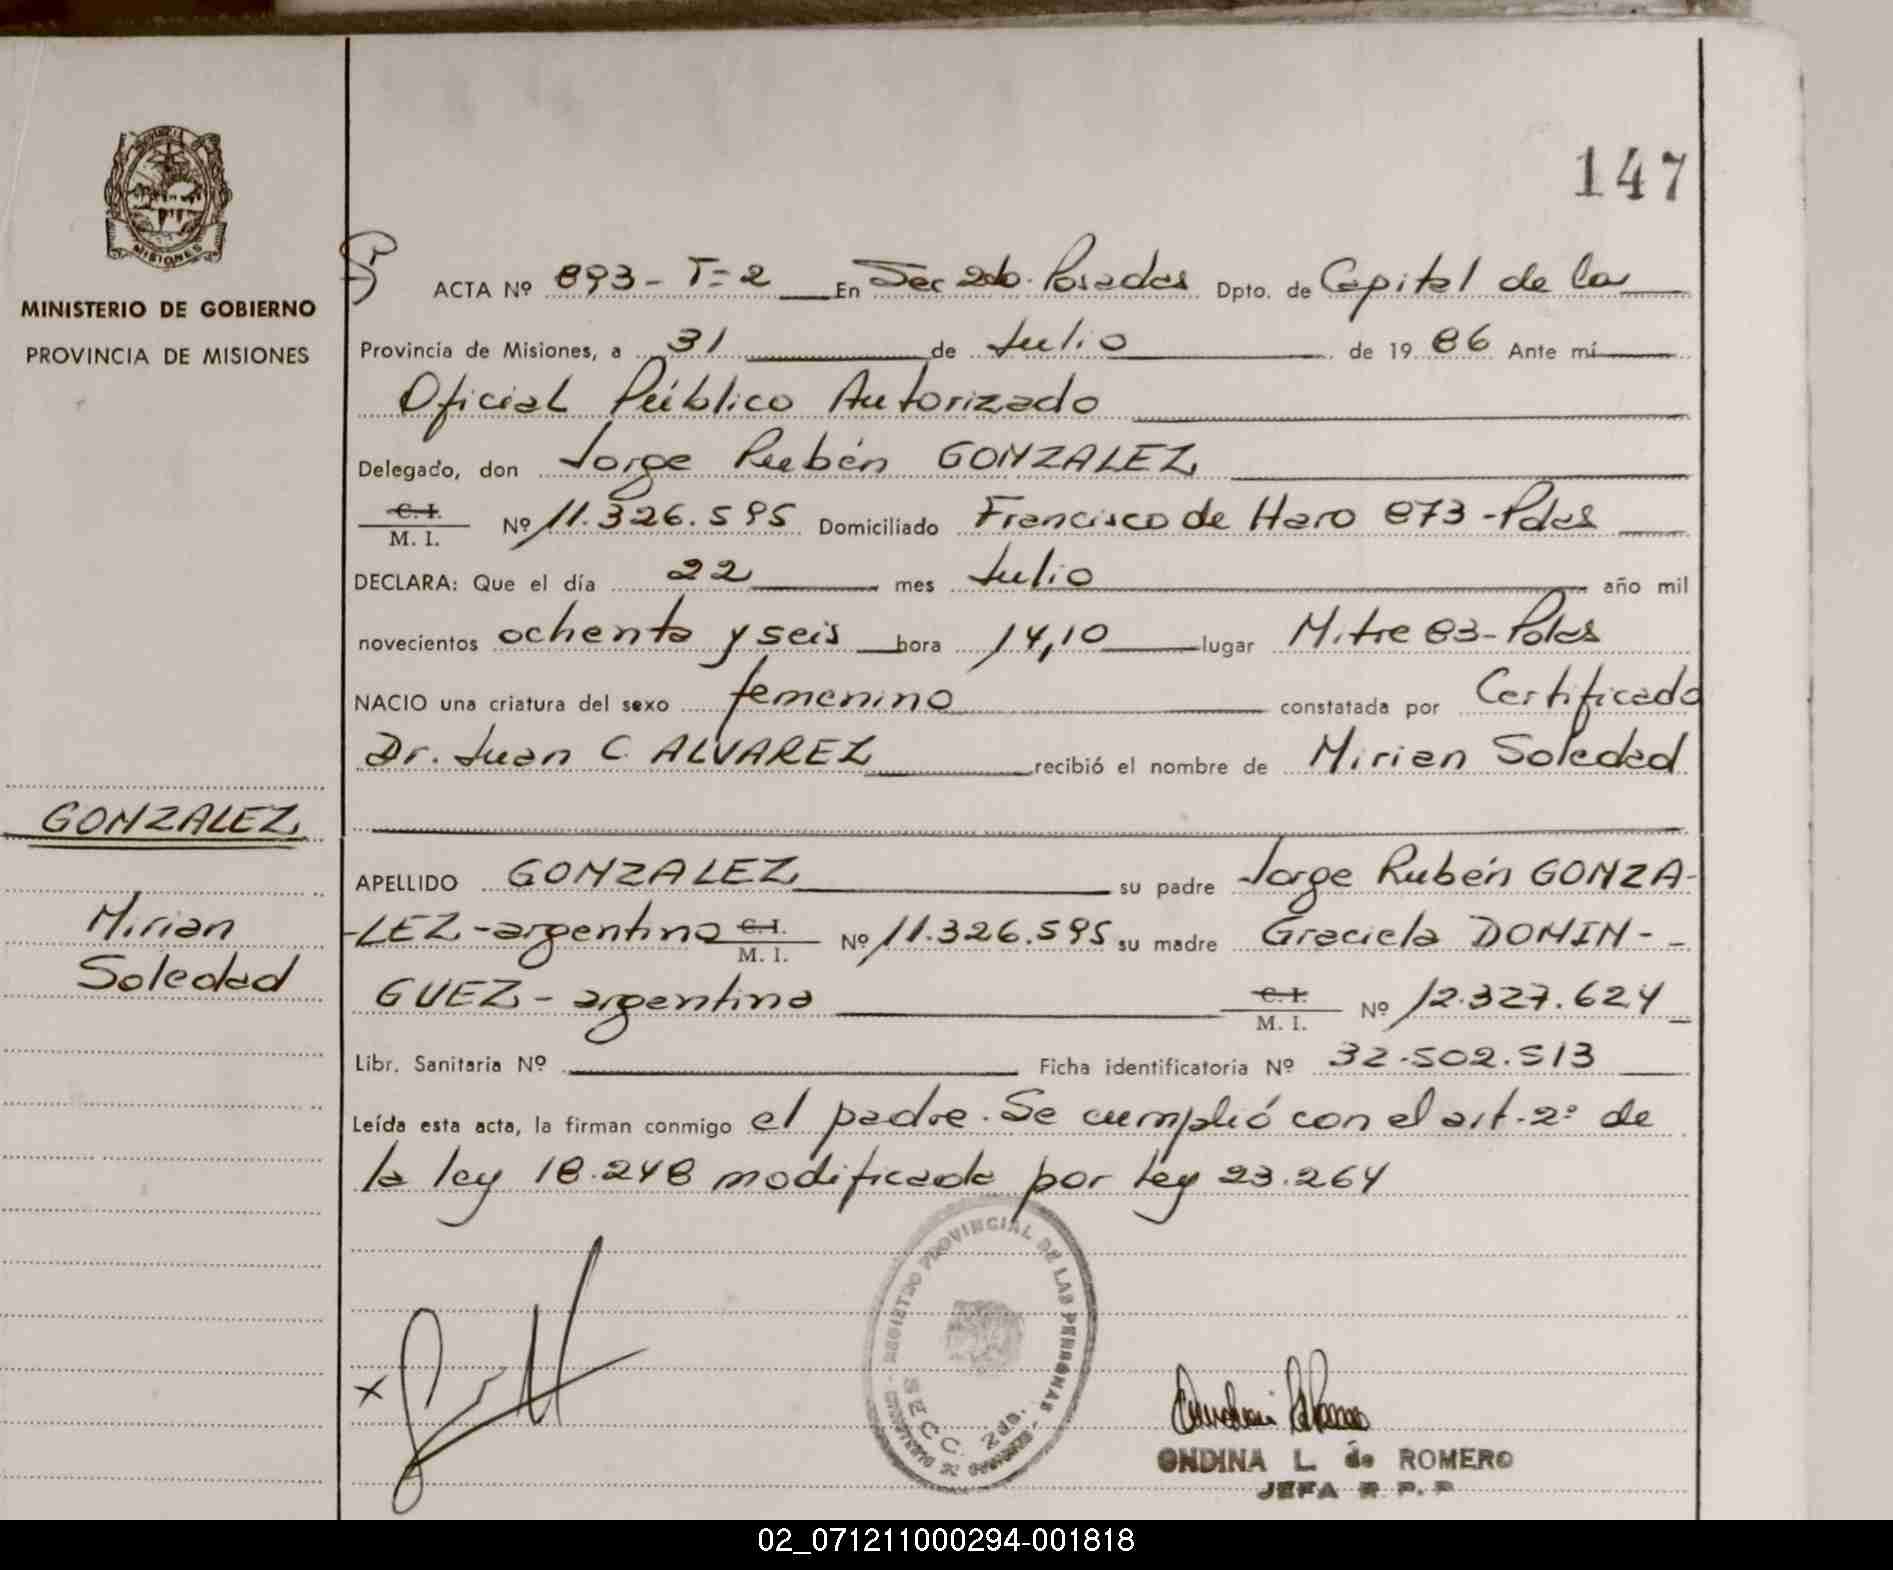 147
PROVINCIA
MISIONES
MINISTERIO DE GOBIERNO
PROVINCIA DE MISIONES
GONZALEZ
Mirian
Soledad
ACTA Nº 893 - T=2 En Sec 2da. Posadas Dpto. de Capital de la
Provincia de Misiones, a 31 de Julio de 1986 Ante mí
Oficial Público Autorizado
Delegado, don Jorge Rubén GONZALEZ
C.I. M. I. Nº 11.326.595 Domiciliado Francisco de Haro 873 - Pdas
DECLARA: Que el día 22 mes Julio año mil
novecientos ochenta y seis hora 14,10 lugar Mitre 83 - Pdas
NACIO una criatura del sexo femenino constatada por Certificado
Dr. Juan C. ALVAREZ recibió el nombre de Mirian Soledad
APELLIDO GONZALEZ su padre Jorge Rubén GONZA-
-LEZ - argentino C.I. M. I. Nº 11.326.595 su madre Graciela DOMIN-
GUEZ - argentina C.I. M. I. Nº 12.327.624
Libr. Sanitaria Nº Ficha identificatoria Nº 32.502.513
Leída esta acta, la firman conmigo el padre. Se cumplió con el art. 2º de
la ley 18.248 modificada por ley 23.264
REGISTRO PROVINCIAL DE LAS PERSONAS
SECC. 2da.
x
ONDINA L. de ROMERO
JEFA R. P. P.
02_071211000294-001818